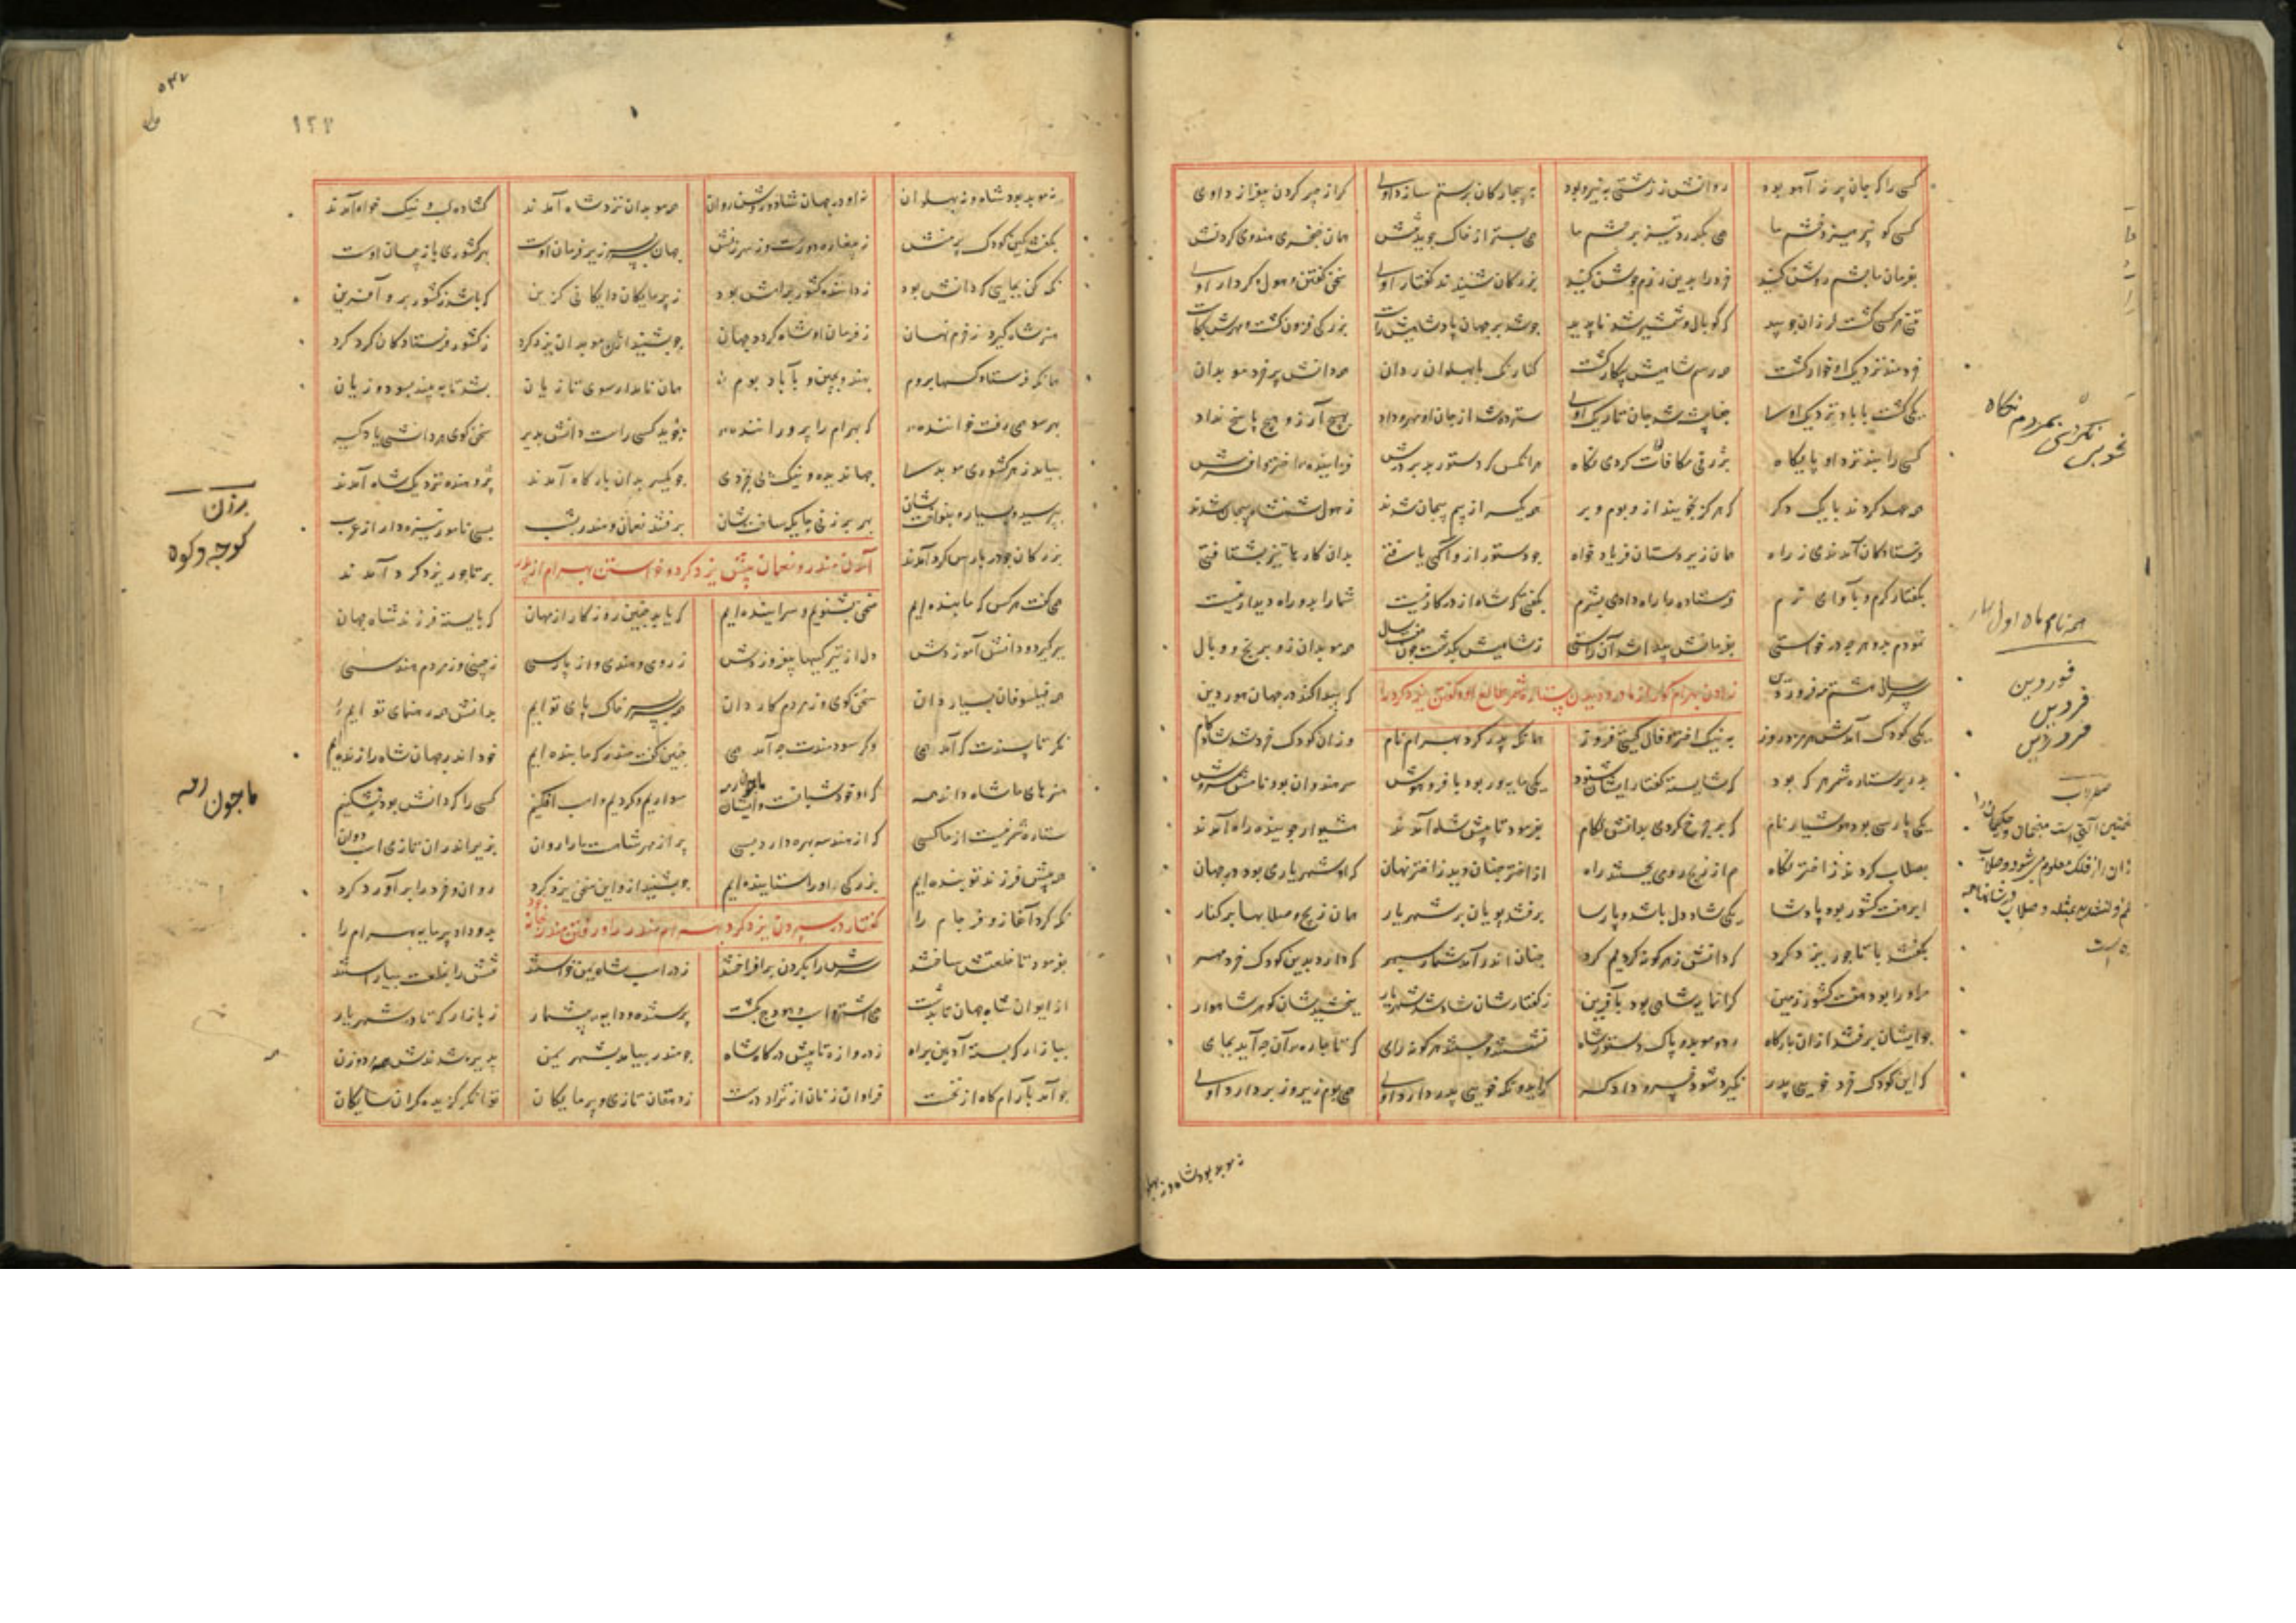 کسی را که جان پر ز آهو بود روانش ز زشتی به نیرو بود
به بیچارگان بر ستم سازد اوی گر از چیز کردن بفرازد اوی
کسی کو نپرهیزد از خشم ما همی بگذرد تیز بر چشم ما
همی بستر از خاک جوید تنش همان خنجر هندوی گردنش
بفرمان ما چشم روشن کنید خرد را بدین رزم جوشن کنید
بزرگان شنیدند گفتار اوی سخن گفتن و هول و کردار اوی
تن هر کسی گشت لرزان چو بید که گوپال و شمشیر شد ناپدید
چو شد بر جهان پادشاهیش راست بزرگی فزون گشت و مهرش بکاست
خردمند نزدیک او خوار گشت همه رسم شاهیش بیکار گشت
کنارنگ با پهلوان و ردان همه دانش پر خرد موبدان
یکی گشت با باد نزدیک اوی جفاپیشه شد جان تاریک اوی
سترده شد از جان او مهر و داد بهیچ آرزو هیچ پاسخ نداد
کسی را نبد نزد او پایگاه بژرفی مکافات کردی گناه
هر آنکس که دستور بد بر درش فزاینده اختر و افسرش
همه عهد کردند با یک دگر که هرگز نجویند ازو بوم و بر
همه یکسر از بیم پیچان شدند ز هول شهنشاه بیجان شدند
فرستادگان آمدندی ز راه همان زیردستان فریادخواه
چو دستور ازو آگهی یافتی بدان کارها تیز بشتافتی
بگفتار گرم و بآوای نرم فرستاده را راه دادی بشرم
بگفتی که شاه از در کار نیست شما را بدو راه دیدار نیست
نمودم بدو هر چه درخواستی بفرمانش پیدا شد آن راستی
ز شاهیش بگذشت چون هفت سال همه موبدان زو برنج و وبال
سر سال هشتم مه فرودین
زادن بهرام گور از مادر و دیدن ستاره شمر طالع او و گفتن یزدگرد را
که پیدا کند در جهان هور دین
یکی کودک آمدش هرمزد روز به نیک اختر و فال گیتی فروز
همانگه پدر کرد بهرام نام وزان کودک خرد شد شادکام
بدر بر ستاره شمر هر که بود که شایسته گفتار ایشان شنود
یکی مایه‌ور بود با فر و هوش سر هندوان بود نامش سروش
یکی پارسی بود هشیار نام که بر چرخ کردی بدانش لگام
بفرمود تا پیش شاه آمدند هشیوار جوینده راه آمدند
بصلاب کردند ز اختر نگاه هم از زیج رومی بجستند راه
از اختر چنان دید ز اختر نهان که او شهریاری بود در جهان
ابر هفت کشور بود پادشا یکی شاددل باشد و پارسا
برفتند پویان بر شهریار همان زیج و صلابها بر کنار
بگفتند با تاجور یزدگرد که دانش ز هر گونه کردیم گرد
چنان اندر آمد شمار سپهر که دارد بدین کودک خرد مهر
مر او را بود هفت کشور زمین گرانمایه شاهی بود بآفرین
ز گفتارشان شاد شد شهریار ببخشیدشان گوهر شاهوار
چو ایشان برفتند از آن بارگاه رد و موبد و پاک دستور شاه
نشستند و جستند هر گونه رای که تا چاره آن چه آید بجای
که این کودک خرد خوی پدر نگیرد شود خسرو دادگر
گر ایدونکه خوی پدر دارد اوی همی بوم زیر و زبر دارد اوی
نه موبد بود شاد و نه پهلوا
بخوبی نکردی بمردم نگاه
همه نام ماه اول بهار
فوردین
فرودین
فروردین
صلاب
نه موبد بود شاد و نه پهلوان نه او در جهان شاد و روشن روان
همه موبدان نزد شاه آمدند گشاده لب و نیک خواه آمدند
بگفتند کین کودک پرمنش ز بیغاره دورست وز سرزنش
جهان سربسر زیر فرمان اوست بهر کشوری باژ و پیمان اوست
نگه کن بجایی که دانش بود ز داننده کشور برامش بود
ز پرمایگان دایگانی گزین که باشد ز کشور برو آفرین
هنر شاه گیرد ز خرم نهان ز فرمان او شاد گردد جهان
چو بشنید ازان موبدان یزدگرد ز کشور فرستادگان کرد گرد
همانگه فرستاد کسها بروم بهند و بچین و بآباد بوم
همان نامدار سوی تازیان بشد تا ببیند بسود و زیان
بهر سو همی رفت خواننده که بهرام را پروراننده
بجوید کسی راست دانش پذیر سخن گوی هر دانشی یادگیر
بیامد ز هر کشوری موبدی جهاندیده و نیک پی بخردی
چو یکسر بدان بارگاه آمدند پژوهنده نزدیک شاه آمدند
بپرسید بسیار و بنواختشان بهر برزنی جایگه ساختشان
برفتند نعمان و منذر بشب بسی نامور نیزه‌دار از عرب
بزرگان چو در پارس گرد آمدند
آمدن منذر و نعمان پیش یزدگرد و خواستن بهرام از پدر
بر تاجور یزدگرد آمدند
همی گفت هر کس که ما بنده‌ایم سخن بشنویم و سراینده‌ایم
که باید چنین روزگار از مهان که بایسته فرزند شاه جهان
ببر گیرد و دانش آموزدش دل از تیرگیها بیفروزدش
ز رومی و هندی و از پارسی ز چینی وز مردم هندسی
همه فیلسوفان بسیاردان سخن گوی وز مردم کاردان
همه سربسر خاک پای توایم بدانش همه رهنمای توایم
نگر تا پسندت که آمد همی وگر سودمندت چه آمد همی
چنین گفت منذر که ما بنده‌ایم خود اندر جهان شاه را زنده‌ایم
هنرهای ما شاه داند همه که او خود شبانست و ایشان رمه
سواریم و گردیم و اسب افکنیم کسی را که دانش بود بشکنیم
ستاره شمر نیست از ما کسی که از هندسه بهره دارد بسی
پر از مهر شاهست ما را روان بزیر اندران تازی اسپ دوان
همه پیش فرزند تو بنده‌ایم بزرگی او را ستاینده‌ایم
چو بشنید ازو این سخن یزدگرد روان و خرد را برآورد گرد
نگه کرد آغاز و فرجام را
گفتار در سپردن یزدگرد بهرام منذر را و رفتن منذر بخانه خود
بدو داد پرمایه بهرام را
بفرمود تا خلعتش ساختند سرش را بگردن برافراختند
تنش را بخلعت بیاراستند ز در اسپ شاه یمن خواستند
از ایوان شاه جهان تا بدشت همی اشتر و اسپ و هودج گذشت
پرستنده و دایه بیشمار ز بازارگه تا در شهریار
ببازارگه بسته آیین براه ز دروازه تا پیش درگاه شاه
چو منذر بیامد بشهر یمن پذیره شدندش همه مرد و زن
چو آمد بآرامگاه از نخست فراوان زنان از نژاد درست
ز دهقان تازی و پرمایگان توانگر گزیده گران سایگان
برزن
کوچه و کوه
ما چون رمه